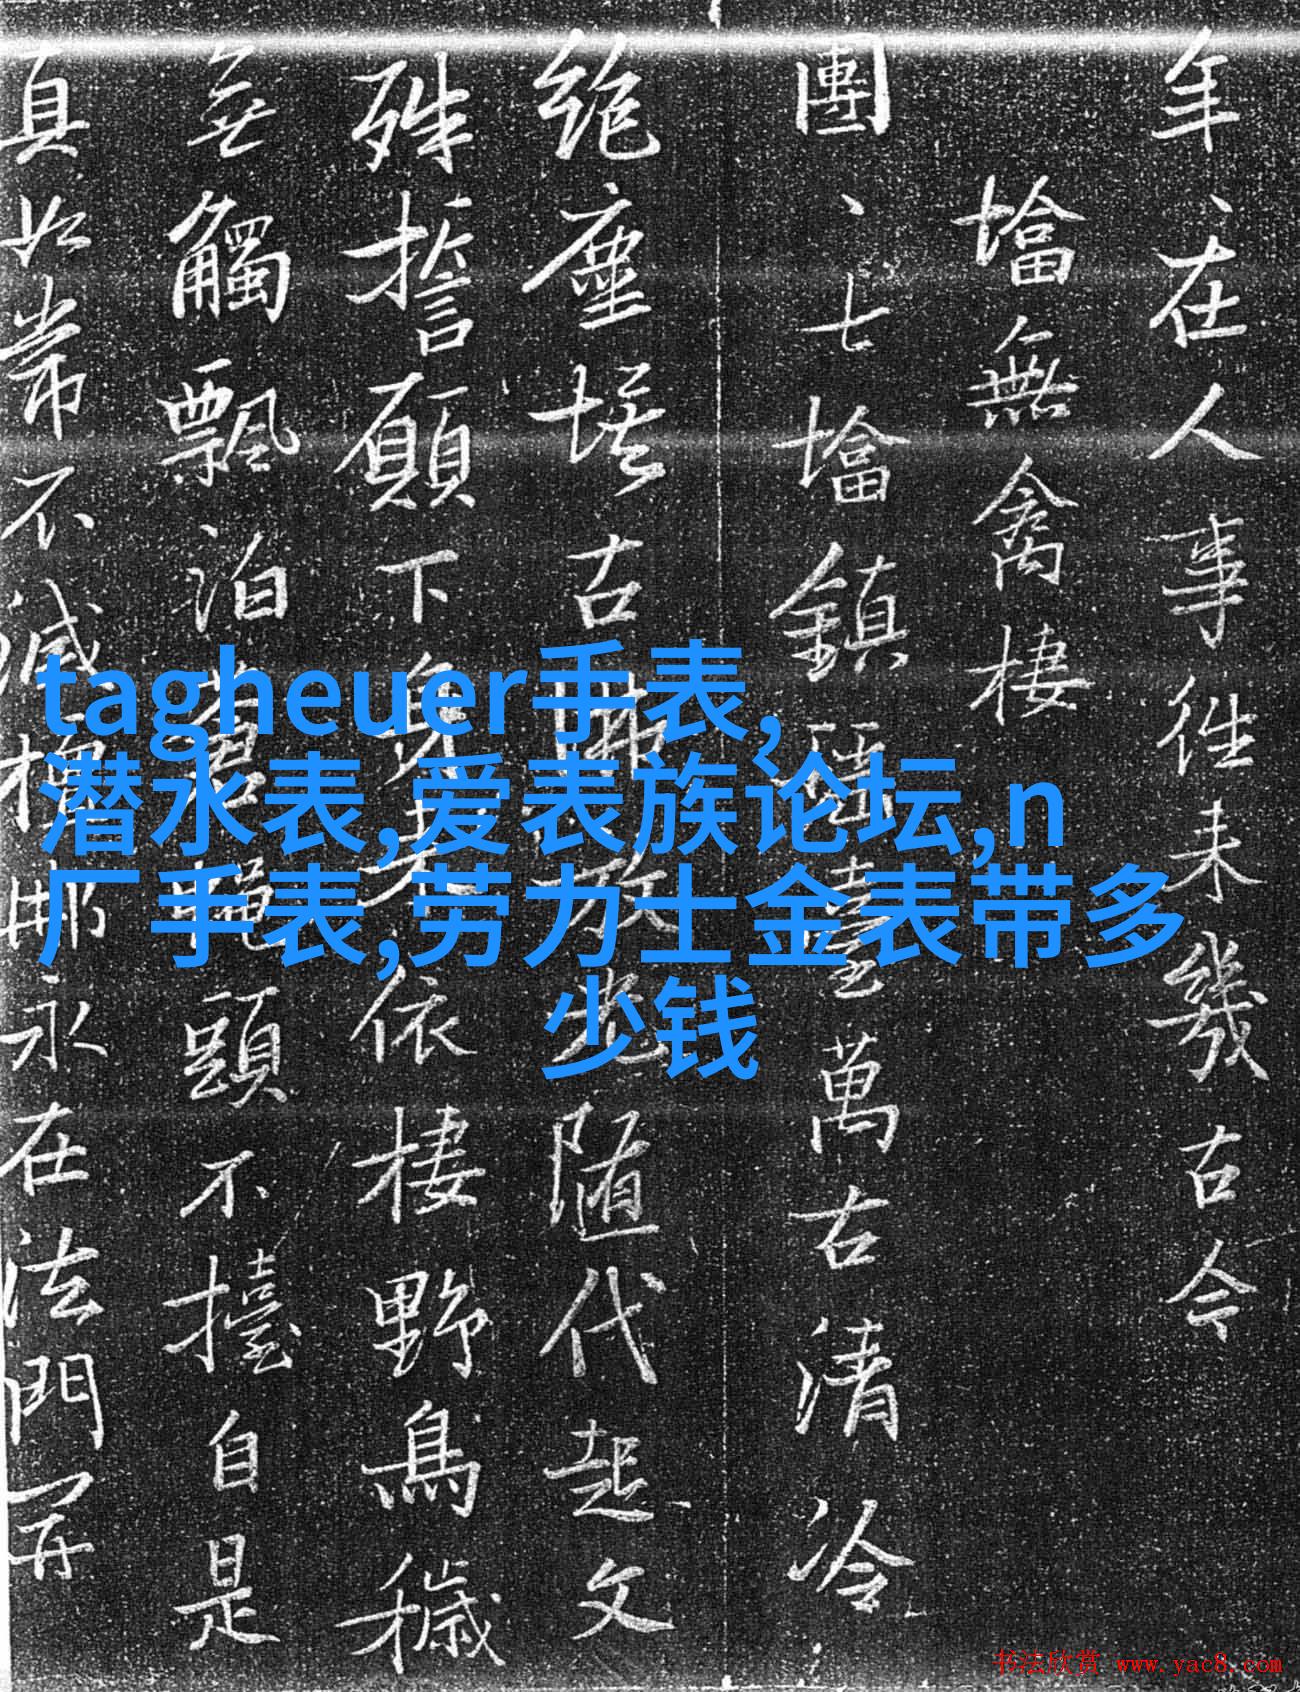 年、在人事往未幾古今
墖無禽棲
團、七墖鎮臺萬古清冷
絶塵埃古放隨代起文
殊誓願下身依棲野鳥穢
無觸飄泊頭不擡自是
真如常不減那永在法門
tagheuer手表,
潜水表,爱表族论坛,n
厂手表,劳力士金表带多
少钱
书法欣赏 www.yac8.com